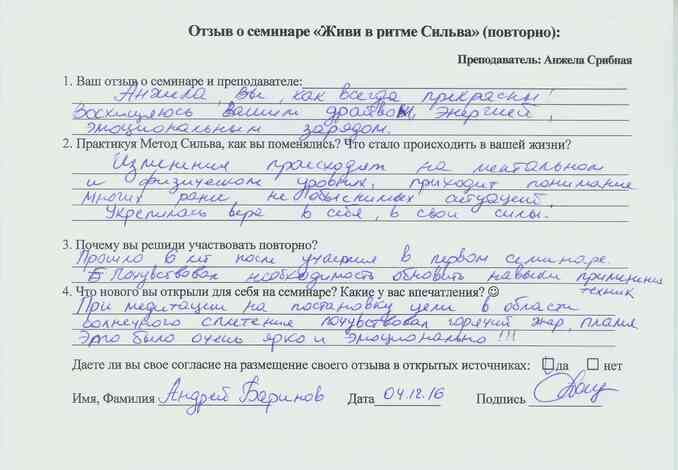 Отзыв о семинаре «Живи в ритме Сильва» (повторно):
Преподаватель: Анжела Срибная
1. Ваш отзыв о семинаре и преподавателе:
Анжела, Вы, как всегда прекрасны!
Восхищаюсь Вашим драйвом, энергией,
эмоциональным зарядом.
2. Практикуя Метод Сильва, как вы поменялись? Что стало происходить в вашей жизни?
Изменения происходят на ментальном
и физическом уровнях, приходит понимание
многих ранее необъяснимых ситуаций,
Укрепилась вера в себя, в свои силы.
3. Почему вы решили участвовать повторно?
Прошло 6 лет после участия в первом семинаре.
Почувствовал необходимость обновить навыки применения
техник
4. Что нового вы открыли для себя на семинаре? Какие у вас впечатления? ☺
При медитации на постановку цели в области
солнечного сплетения почувствовал горячий жар, пламя
Это было очень ярко и эмоционально!!!
Даете ли вы свое согласие на размещение своего отзыва в открытых источниках: ☐ да ☐ нет
Имя, Фамилия Андрей Баринов Дата 04.12.16 Подпись